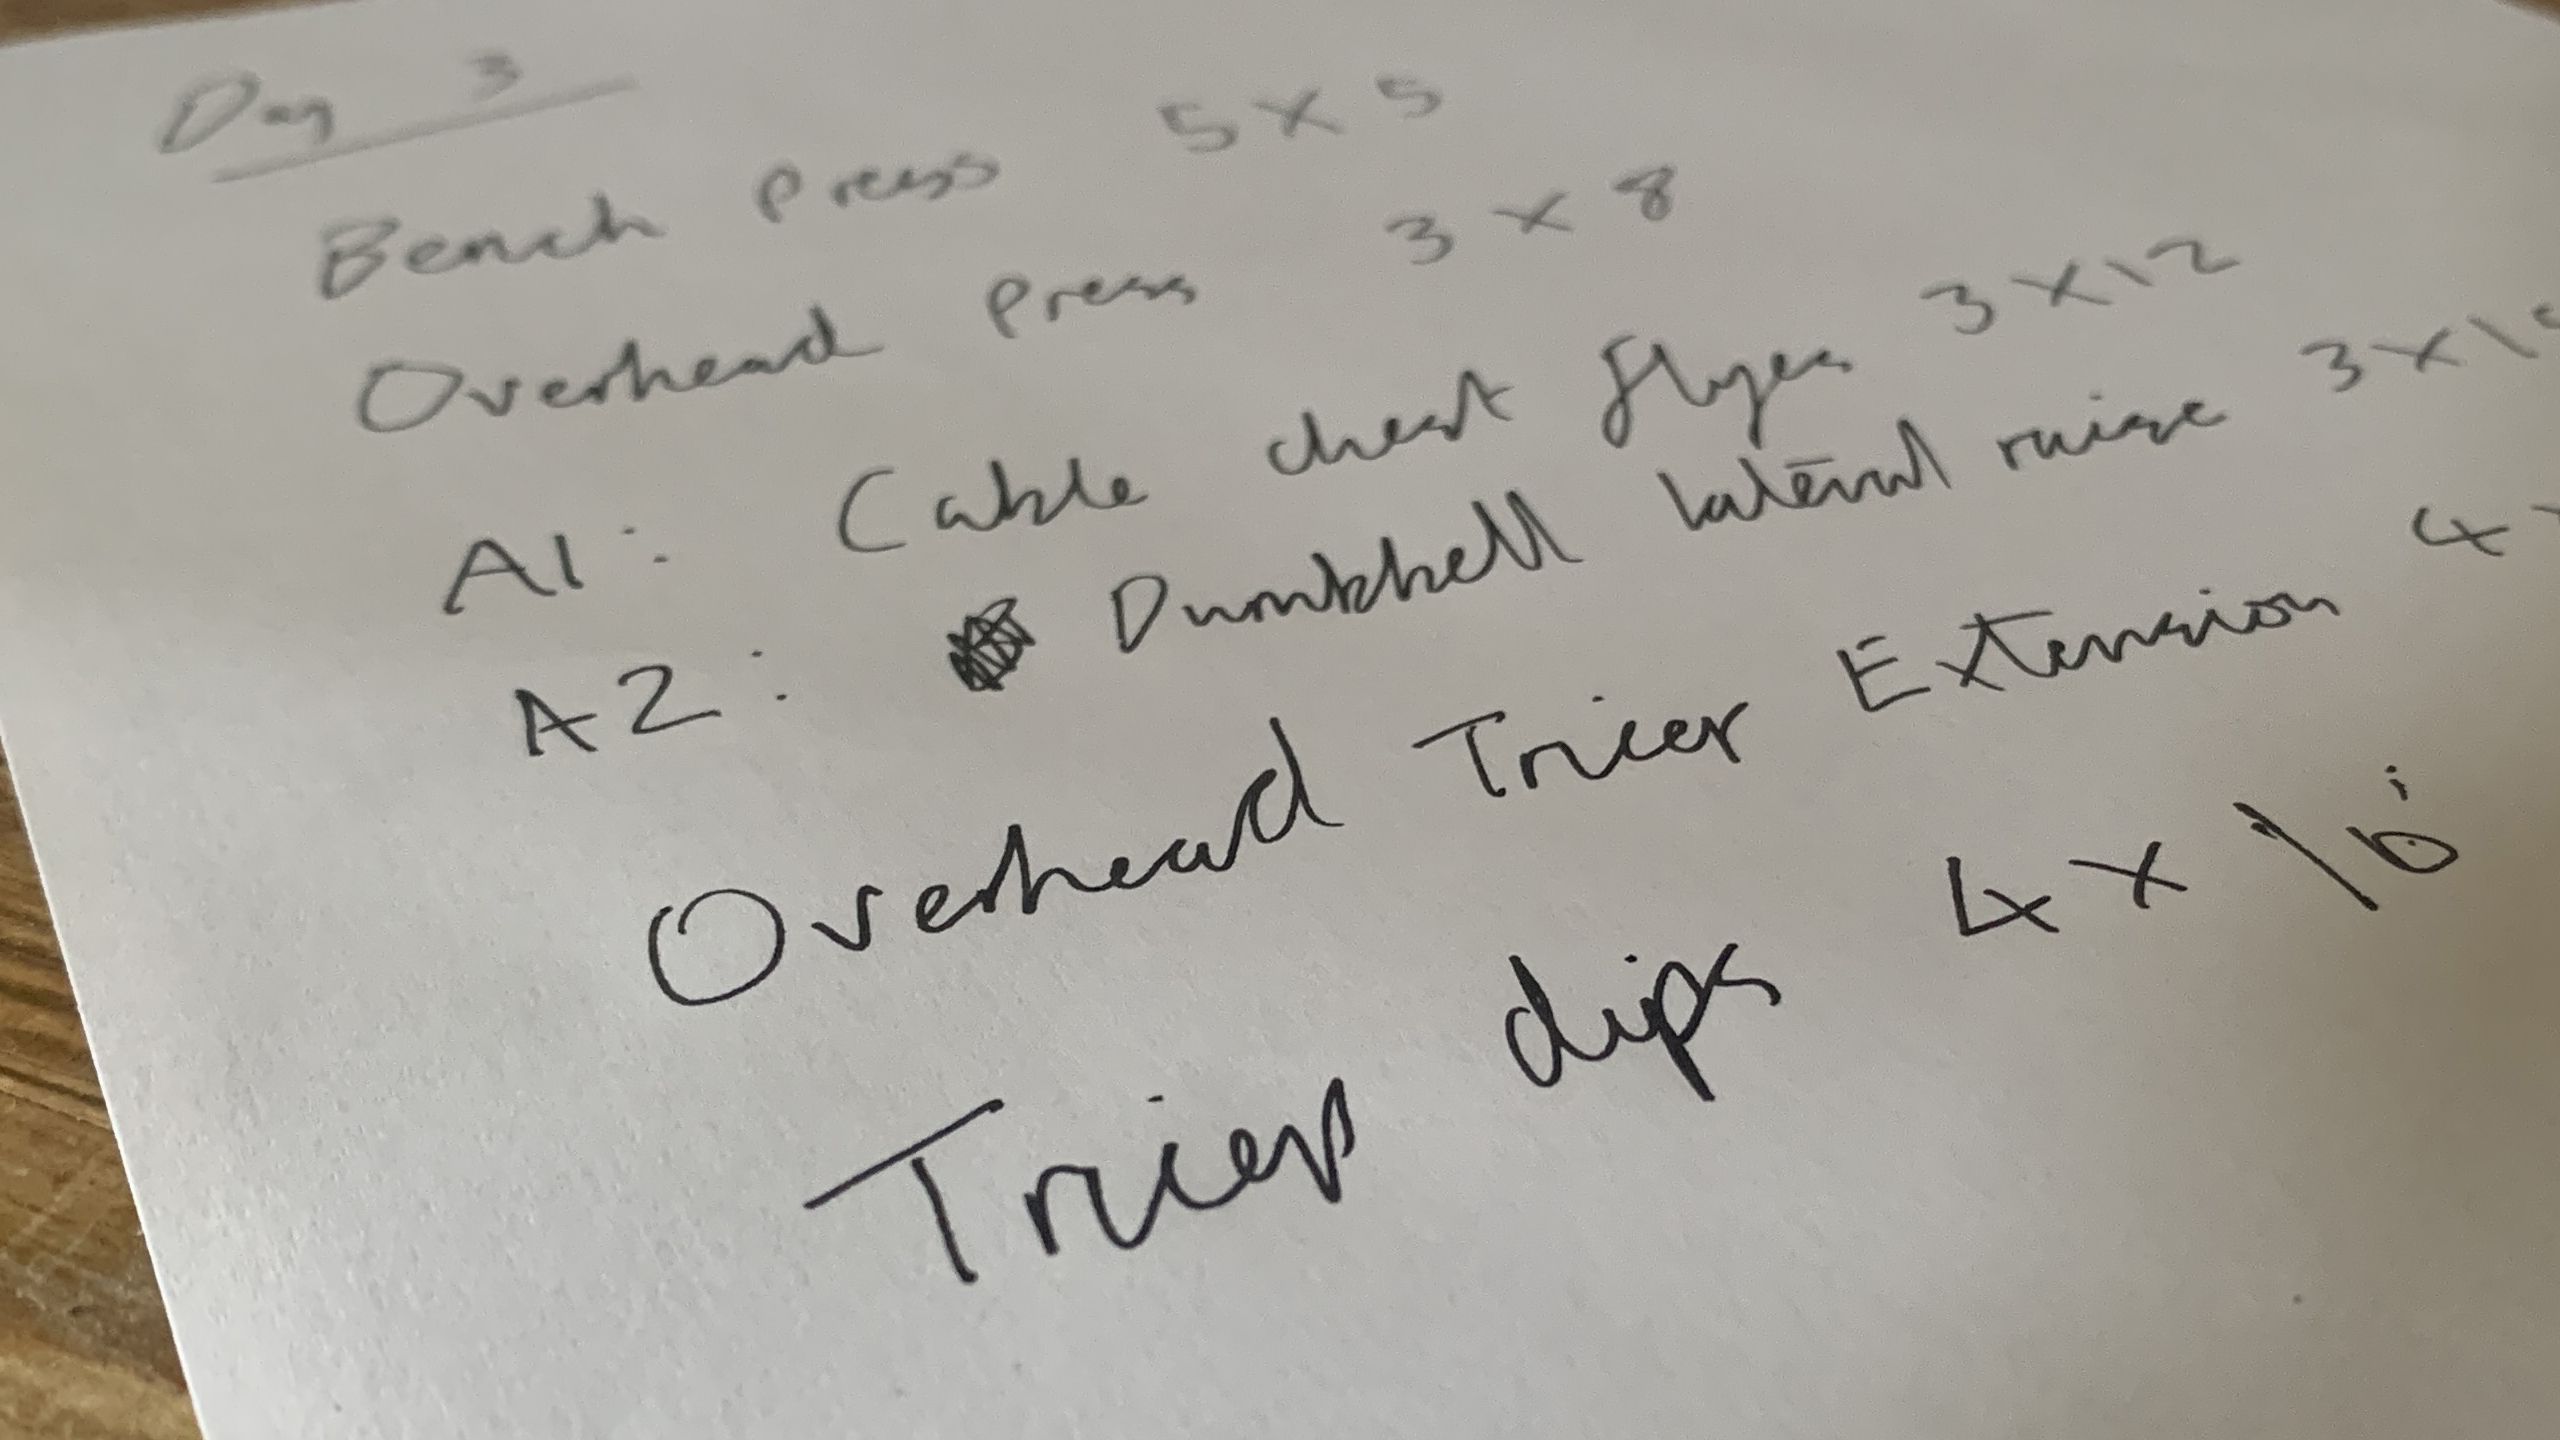 Day 3
Bench press 5 x 5
Overhead press 3 x 8
A1: Cable chest flyes 3 x 12
A2: Dumbbell lateral raise 3 x
Overhead Tricep Extension 4 x
Tricep dips 4 x 10